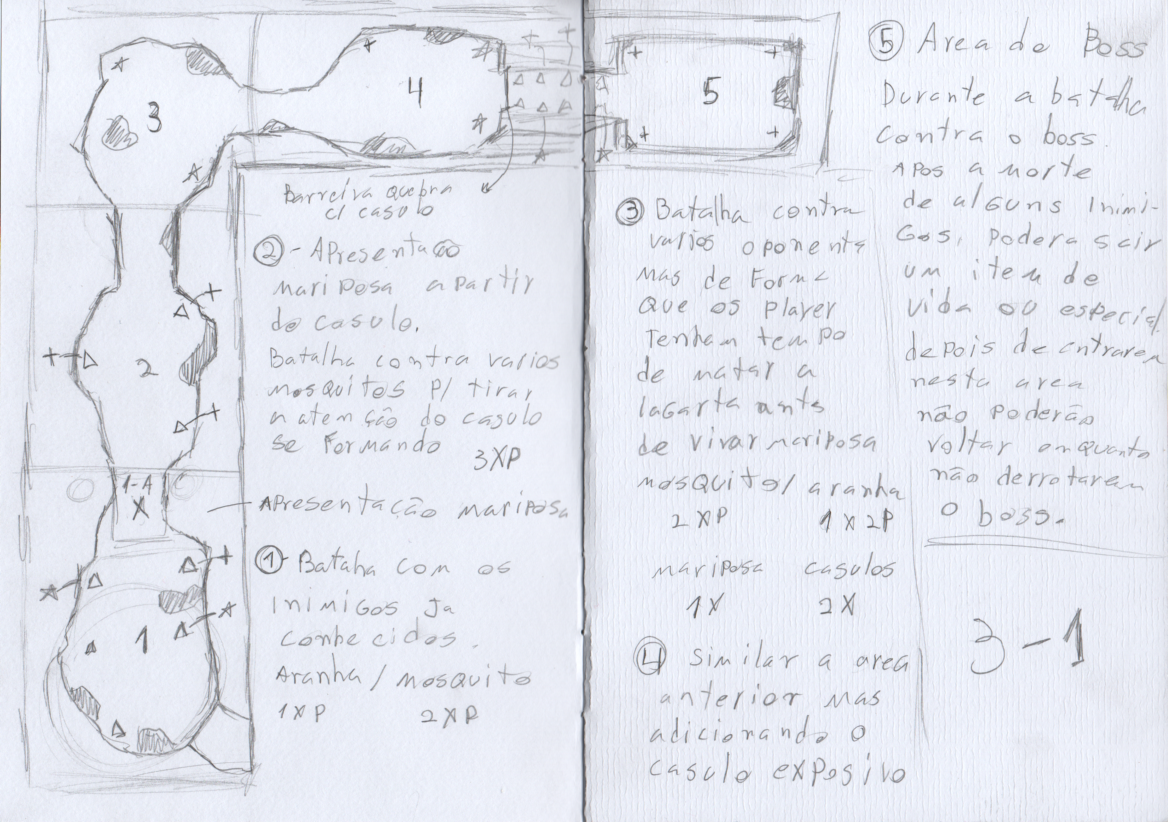 3
4
5
2
1-A
X
1
Barreira quebra
c/ casulo
② - Apresentação
mariposa apartir
do casulo.
Batalha contra varios
mosquitos p/ tirar
a atenção do casulo
se formando
3XP
Apresentação mariposa
① - Bataha com os
inimigos ja
conhecidos.
Aranha / mosquito
1XP 2XP
③ Batalha contra
varios oponents
mas de forma
que os player
tenham tempo
de matar a
lagarta ants
de virar mariposa
mosquito/ aranha
2XP 1X2P
mariposa casulos
1X 2X
④ Similar a area
anterior mas
adicionando o
casulo exposivo
⑤ Area do Boss
Durante a batalha
contra o boss.
Apos a morte
de alguns inimi-
gos, podera sair
um item de
vida ou especial.
depois de entrarem
nesta area
não poderão
voltar enquanto
não derrotarem
o boss.
3-1